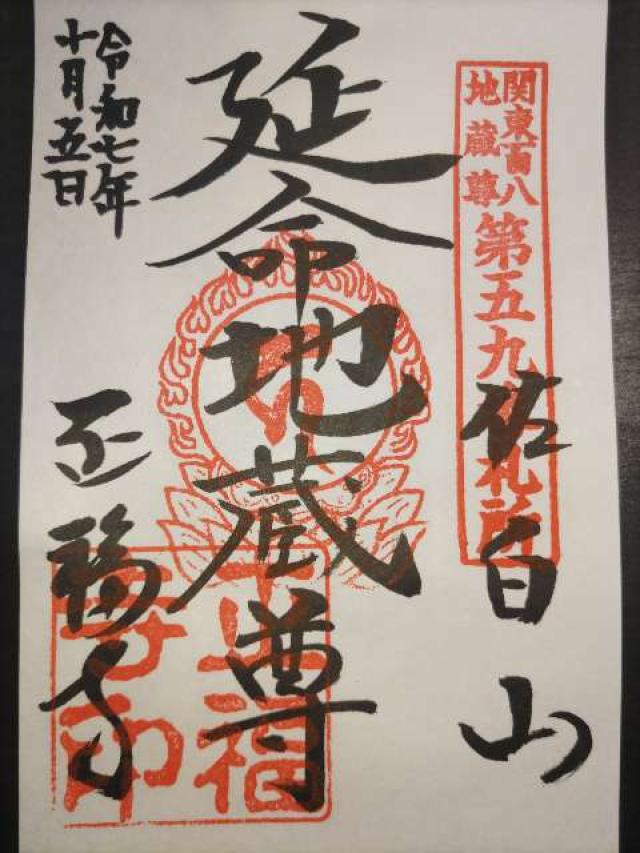 関東百八
地蔵尊
第五九番札所
佐白山
延命地蔵尊
令和七年
十月五日
正福寺
正福
寺印